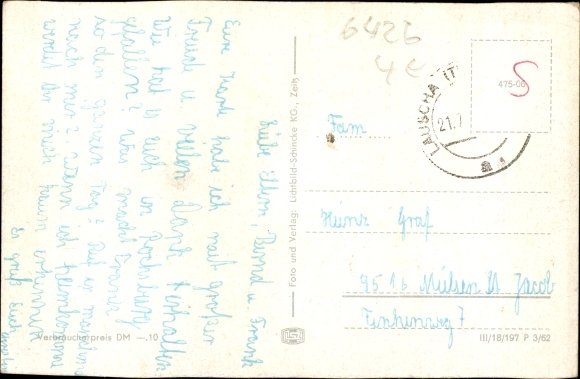 Liebe Eltern, Bernd u. Frank
Eure Karte habe ich mit großer
Freude u. vielen Dank erhalten
Wie hat es euch in
gefallen? Was macht
so den ganzen Tag? Ruft er manchmal
nach mir? Wenn ich heimkomme
werdet Ihr mich kaum erkennen
Es grüßt Euch
6426
4 €
475-00
S
LAUSCHA (T
21.7
a
Foto und Verlag: Lichtbild-Schincke KG., Zeitz
Fam.
Heinz Graf
9516 Mülsen St. Jacob
Finkenweg 7
Verbraucherpreis DM —.10
III/18/197 P 3/62